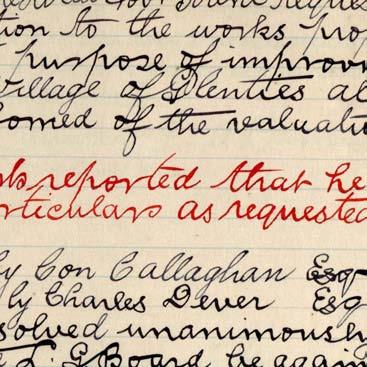 tion to the works pro
purpose of improv
Village of Glenties al
formed of the valuati
rk reported that he
rticulars as requested
by Con Callaghan Esq
by Charles Dever Esq
solved unanimously
L. G. Board be again